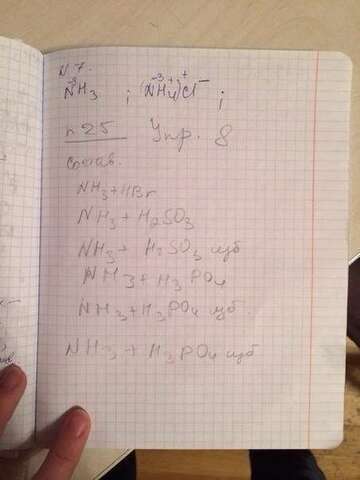 N 7.
-3 -3 + + -
NH3 ; (NH4)Cl ;
п 25 Упр. 8
NH3+HBr
NH3 + H2SO3
NH3+ H2SO3 изб
NH3+H3PO4
NH3+H3PO4 изб.
NH3 + H3PO4 изб